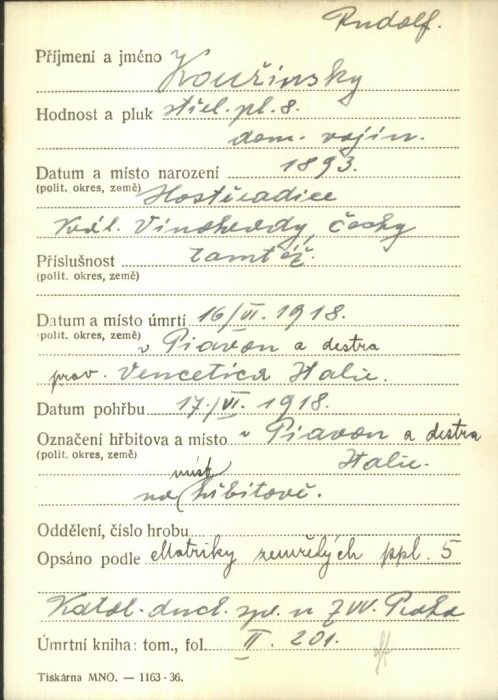 Rudolf.
Příjmení a jméno Kouřinsky
Hodnost a pluk střel. pl. 8.
dom. vojín.
Datum a místo narození 1893.
(polit. okres, země) Hostěradice
Král. Vinohrady, Čechy
Příslušnost tamtéž.
(polit. okres, země)
Datum a místo úmrtí 16/VI. 1918.
(polit. okres, země) v Piavon a destra
prov. Venetica Italie.
Datum pohřbu 17./VI. 1918.
Označení hřbitova a místo v Piavon a destra
(polit. okres, země) Italie.
míst
na hřbitově.
Oddělení, číslo hrobu
Opsáno podle Matriky zemřelých ppl. 5
Katol. duch. spr. u ZVV. Praha
Úmrtní kniha: tom., fol. II. 201.
Tiskárna MNO. — 1163-36.